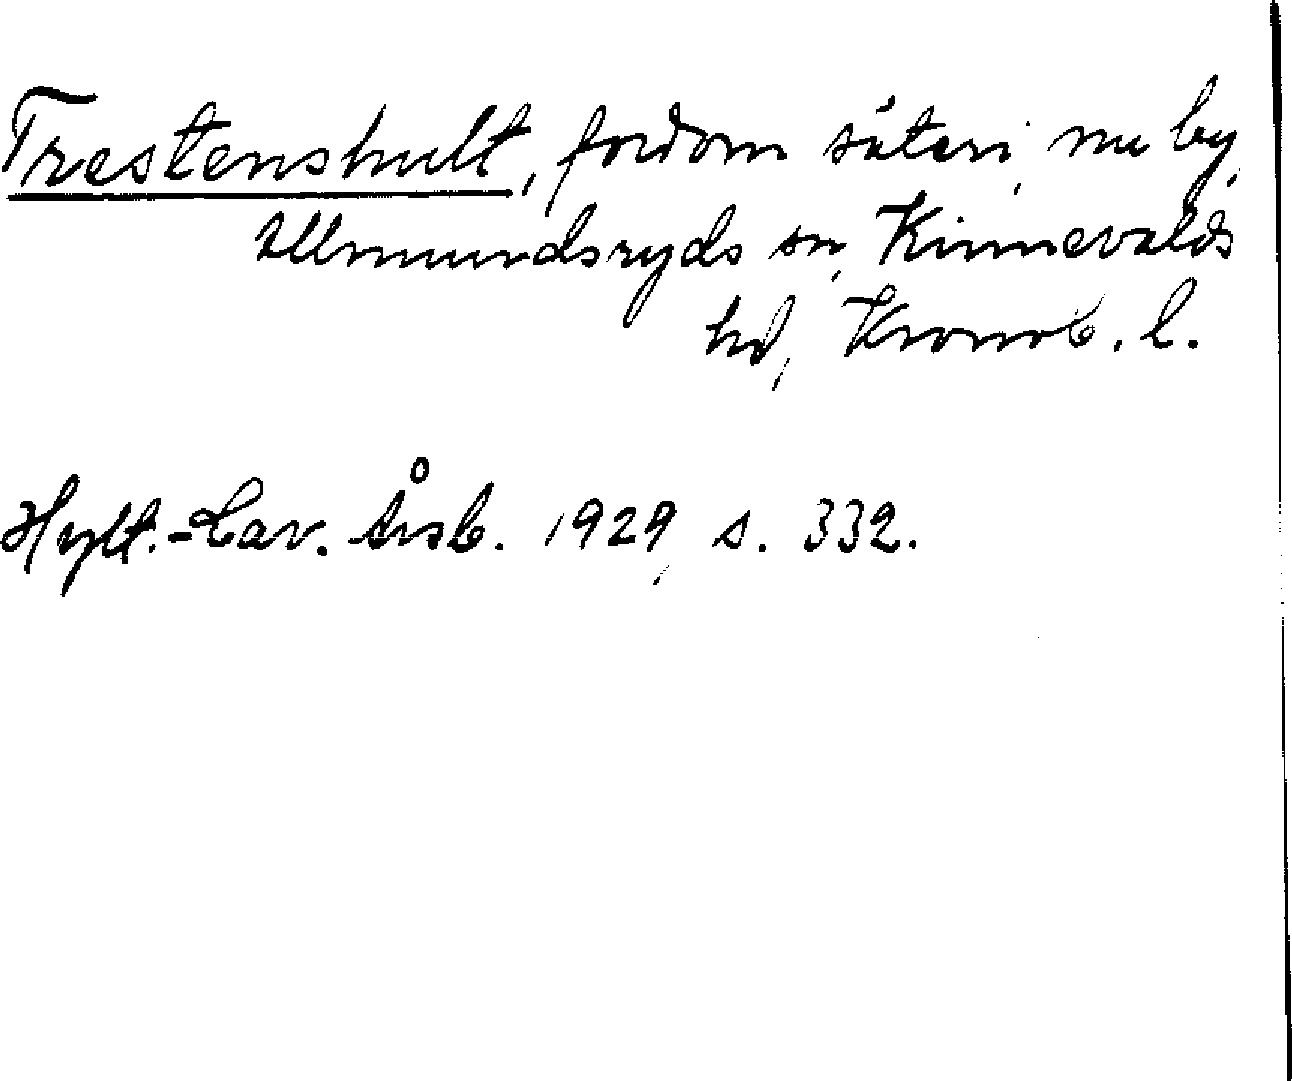 Trestenshult, fordom säteri, nu by,
Allmundsryds sn, Kinnevalds
hd, Kronob. l.
Hylt.-Cav. Årsb. 1929, s. 332.